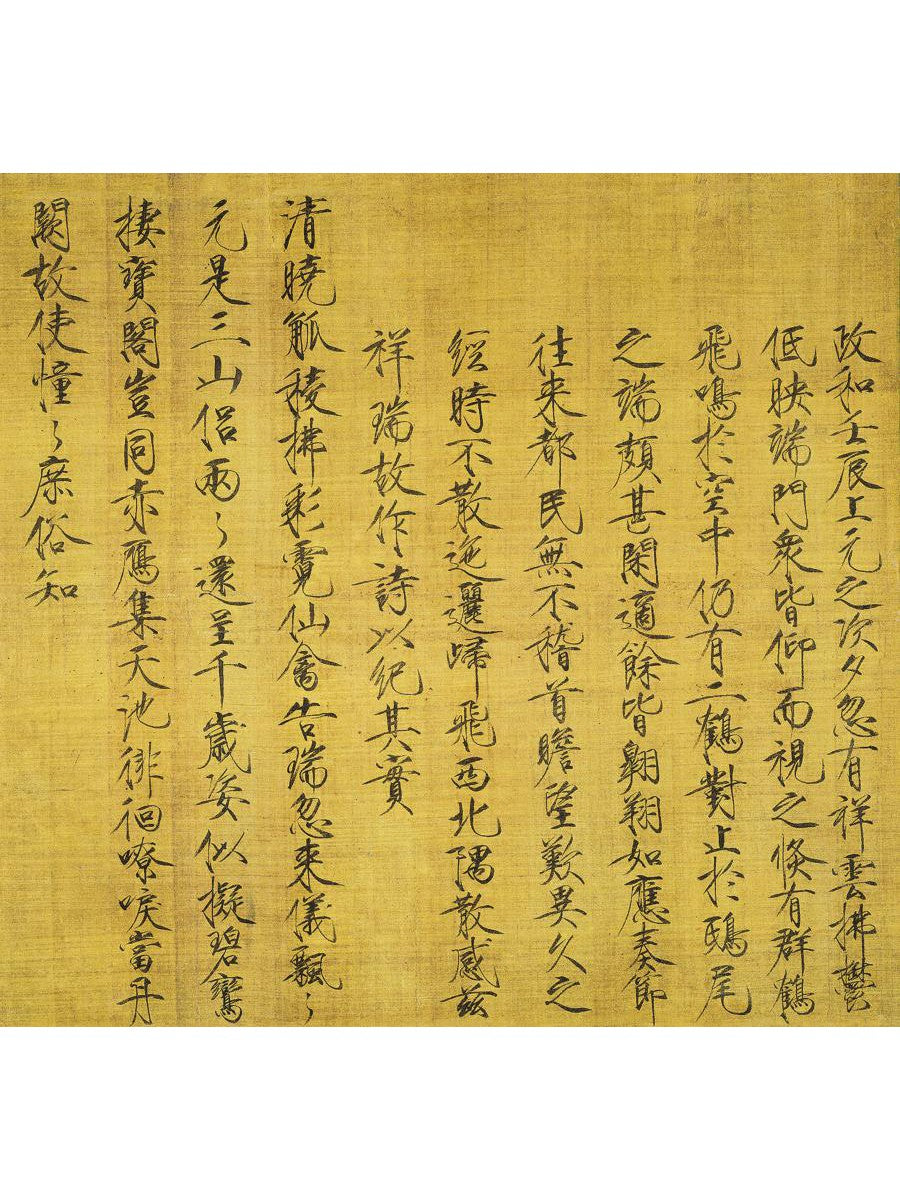 政和壬辰上元之次夕忽有祥雲拂鬱
低映端門衆皆仰而視之倏有群鶴
飛鳴於空中仍有二鶴對止於鴟尾
之端頗甚閑適餘皆翱翔如應奏節
往来都民無不稽首瞻望歎異久之
經時不散迤邐歸飛西北隅散感茲
祥瑞故作詩以紀其實
清曉觚稜拂彩霓仙禽告瑞忽来儀飄〻
元是三山侣兩〻還呈千歲姿似擬碧鸞
棲寶閣豈同赤鴈集天池徘徊嘹唳當丹
闕故使憧〻庶俗知